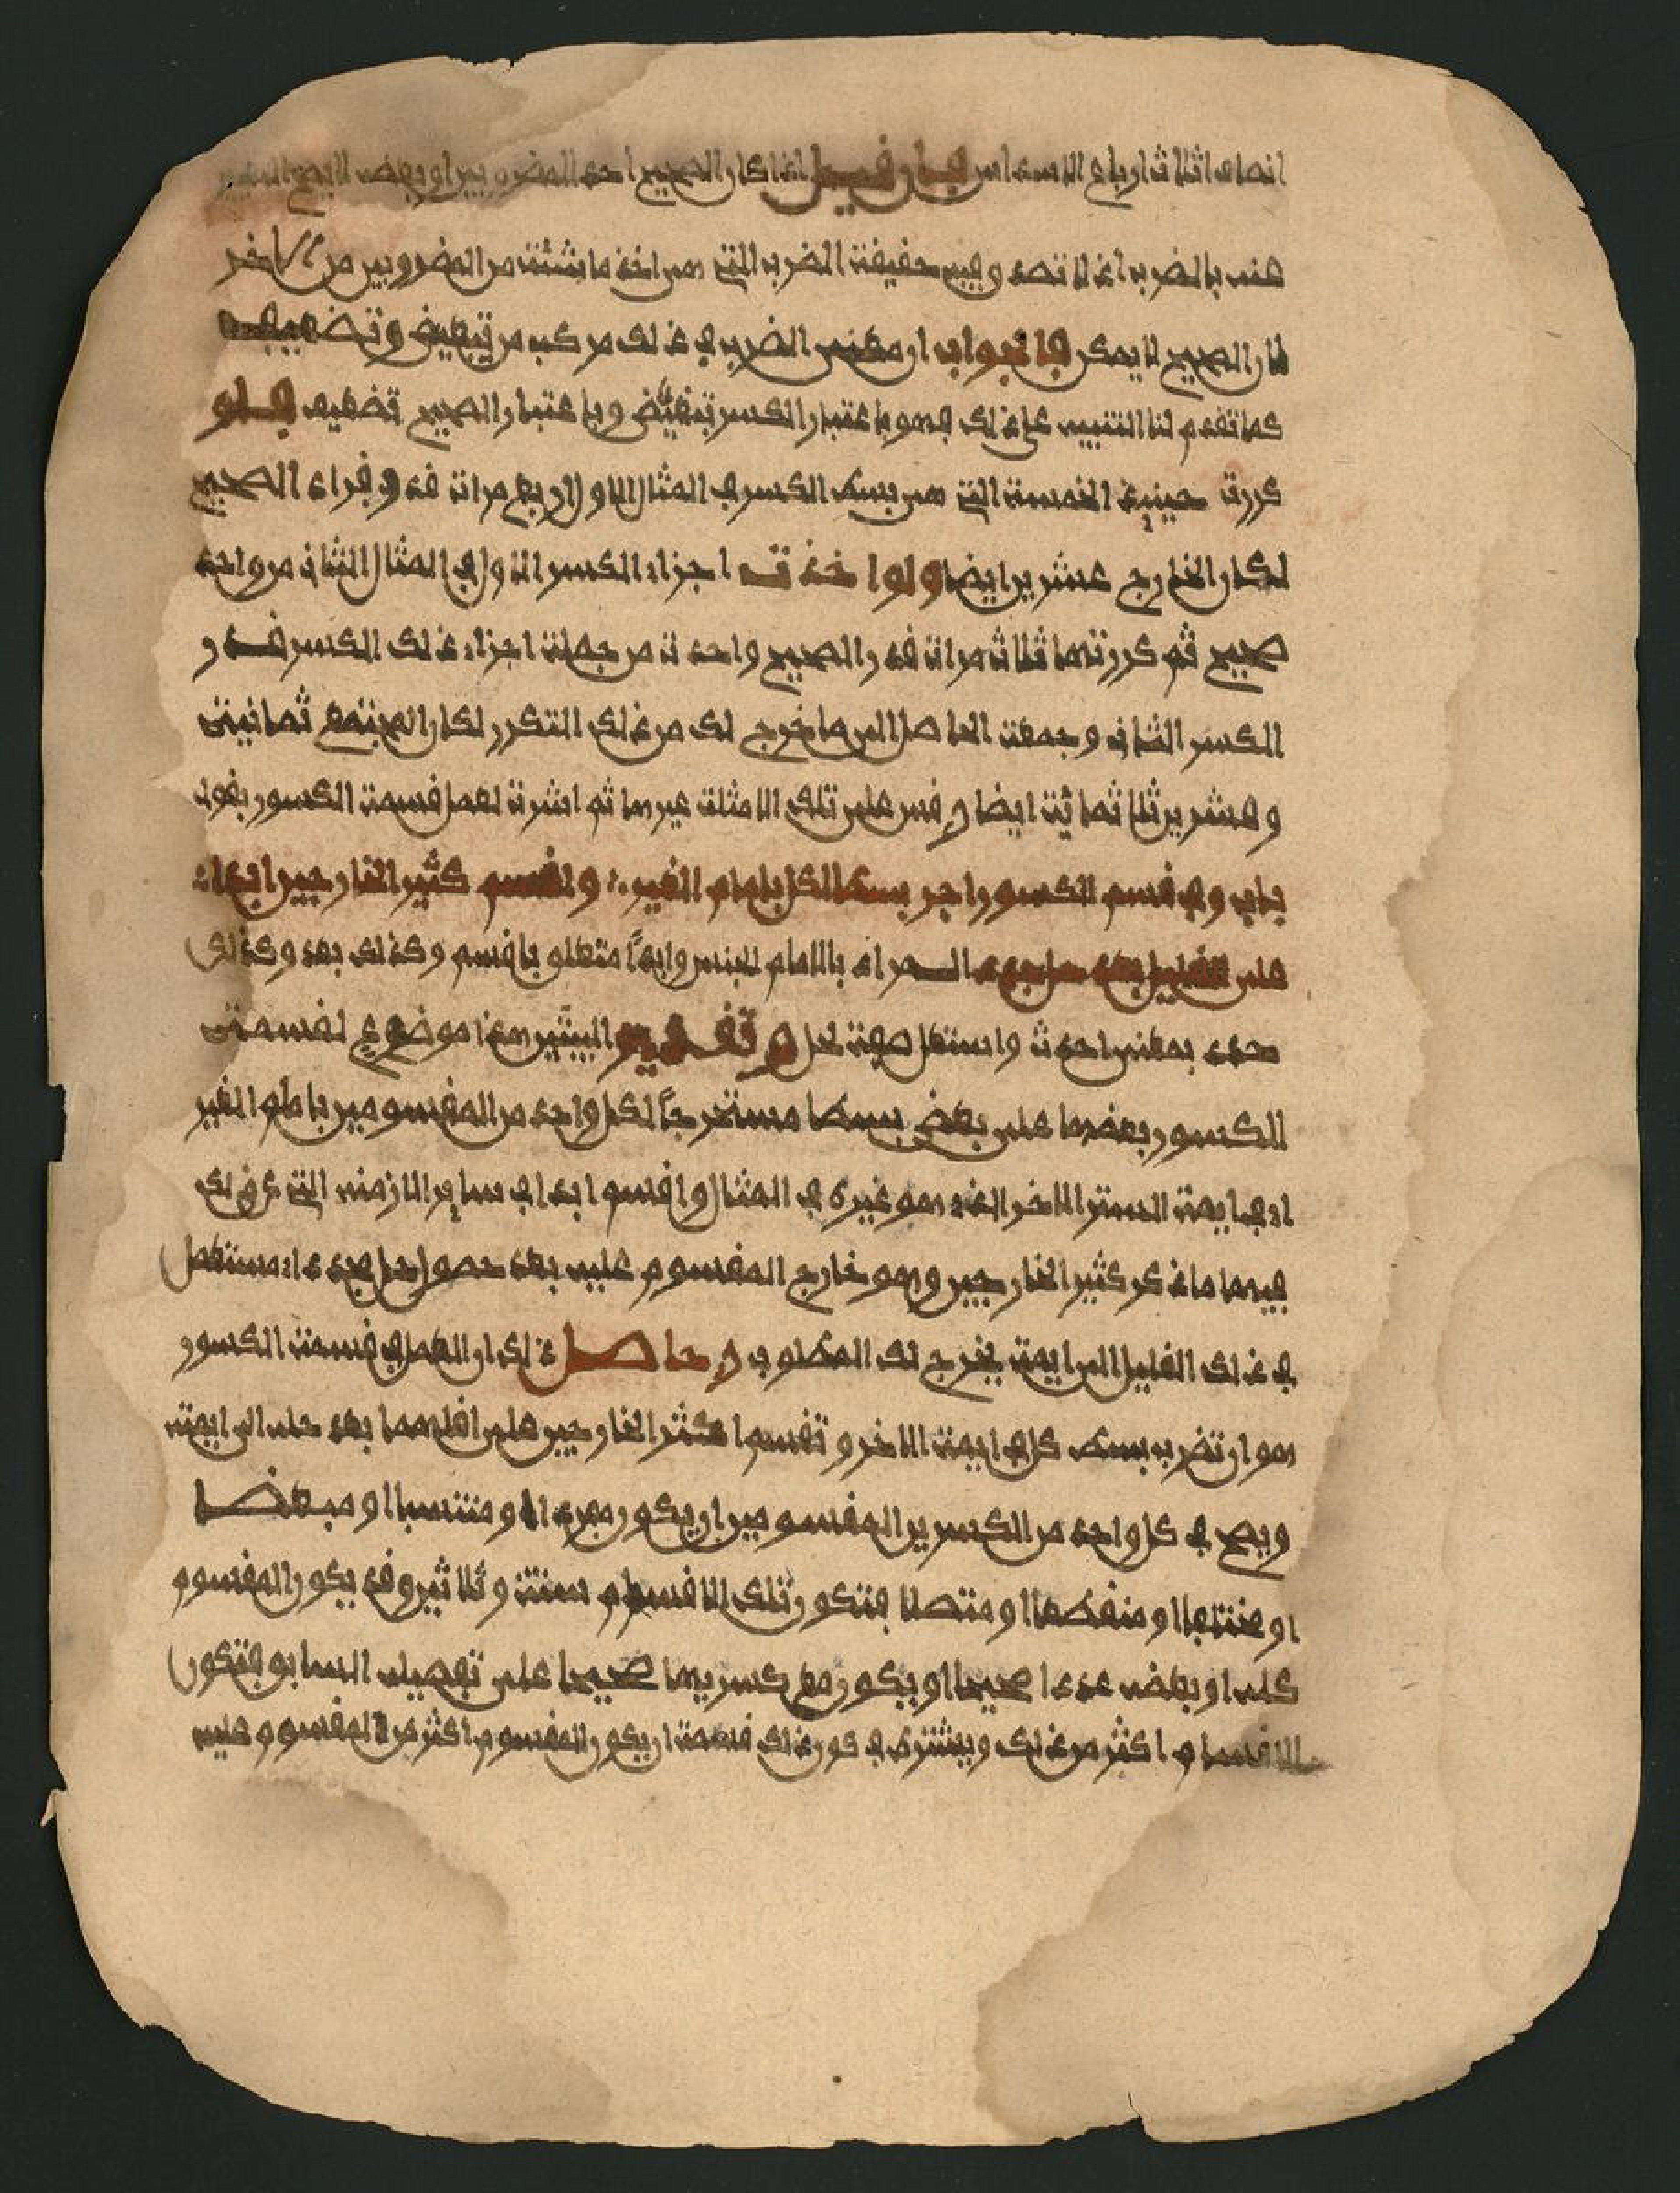 انصاف اثلاث ارباع الاسداس فان قيل اذا كان الصحيح احد المضروبين او بعضه لا يصح التعبير
عنه بالضرب اذ لا تصدق فيه حقيقة الضرب التي هي اخذ ما شئت من المضروبين من الاخر
لان الصحيح لا يمكن فالجواب ان معنى الضرب في ذلك مركب من تبعيض وتضعيف
كما تقدم لنا التنبيه على ذلك فهو باعتبار الكسر تبعيض وباعتبار الصحيح تضعيف فلو
كررت حينئذ الخمسة التي هي بسط الكسر في المثال الاول اربع مرات قدر افراد الصحيح
لكان الخارج عشرين ايضا ولو اخذت اجزاء الكسر الاول في المثال الثاني من واحد
صحيح ثم كررتها ثلاث مرات قدر الصحيح واحدة من جملة اجزاء ذلك الكسر قدر
الكسر الثاني وجمعت الحاصل الى ما خرج لك من ذلك التكرر لكان المجتمع ثمانية
وعشرين ثلاثمائة ايضا وقس على تلك الامثلة غيرها ثم اشرت لعمل قسمة الكسور بقول
باب وفي قسم الكسور اجر بسط الكل بامام الغير ∴ واقسم كثير الخارجين ابدا
على القليل بعد حل جدد المراد بالامام الجنس وابدا متعلق باقسم وكذلك بعد وكذلك
حدد بمعنى احدث واستعل صفة لحل وتقدير البيتين هذا موضوع لقسمة
الكسور بعضها على بعض بسطا مستخرجا لكل واحد من المقسومين بامام الغير
اي في ايمة الستر الاخر الذي هو غيره في المثال واقسم ابدا في ساير الازمنة التي ذلك
فيها ما ذكر كثير الخارجين وهو خارج المقسوم عليه بعد حصول حل جدد اي مستعمل
في ذلك القليل الى ايمة يخرج لك المطلوب وحاصل ذلك ان العمل في قسمة الكسور
هو ان تضرب بسط كل في ايمة الاخر وتقسم اكثر الخارجين على اقلهما بعد حله الى ايمته
ويصح في كل واحد من الكسرين المقسومين ان يكون مفردا او منتسبا او مبعضا
او مختلفا او منقطعا او متصلا فتكون تلك الاقسام ستة وثلاثين وقد يكون المقسوم
كله او بعضه عددا صحيحا او يكون مع كسريهما صحيحا على تفصيله السابق فتكون
الاقسام اكثر من ذلك ويشترط في كون ذلك قسمة ان يكون المقسوم اكثر من المقسوم عليه